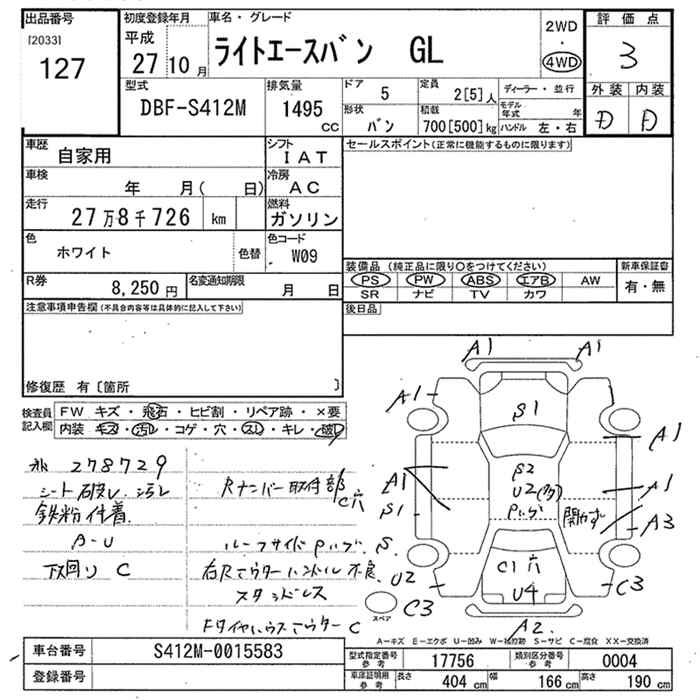 出品番号
[2033]
127
初度登録年月
平成
27 10 月
車名・グレード
ライトエースバン GL
2WD
・
4WD
評価点
3
外装 内装
D D
型式
DBF-S412M
排気量
1495
CC
ドア
5
定員
2[5]人
ディーラー・並行
形状
バン
積載
700[500]kg
モデル年式 年
ハンドル 左・右
車歴
自家用
シフト
IAT
セールスポイント(正常に機能するものに限ります)
車検
年 月( 日)
冷房
AC
走行
27万8千726 km
燃料
ガソリン
色
ホワイト
色替
色コード
W09
R券
8,250円
名変通知期限
月 日
装備品 (純正品に限り〇をつけてください)
PS PW ABS エアB AW
SR ナビ TV カワ
新車保証書
有・無
注意事項申告欄(不具合内容等は具体的に記入して下さい)
後日品
修復歴 有〔箇所 〕
検査員記入欄
FW キズ・飛石・ヒビ割・リペア跡・×要
内装 キズ・汚レ・コゲ・穴・スレ・キレ・破レ
278729
シート破レ 汚レ
鉄粉付着
A-U
下回り C
Rナンバー取付部
C穴
ルーフサイドPハゲ S
右Rアウターハンドル不良
スタッドレス
FタイヤハウスアウターC
A1 A1
A1
S1
A1
S2
A1
U2
A1
S1
Pハゲ
A3
C1穴
U2
U4
C3
C3
スペア
A2
A-キズ E-エクボ U-凹み W-補修跡 S-サビ C-腐食 XX-交換済
車台番号
S412M-0015583
登録番号
型式指定番号
参考
17756
類別区分番号
参考
0004
車庫証明用
参考
長さ
404 cm
幅
166 cm
高さ
190 cm